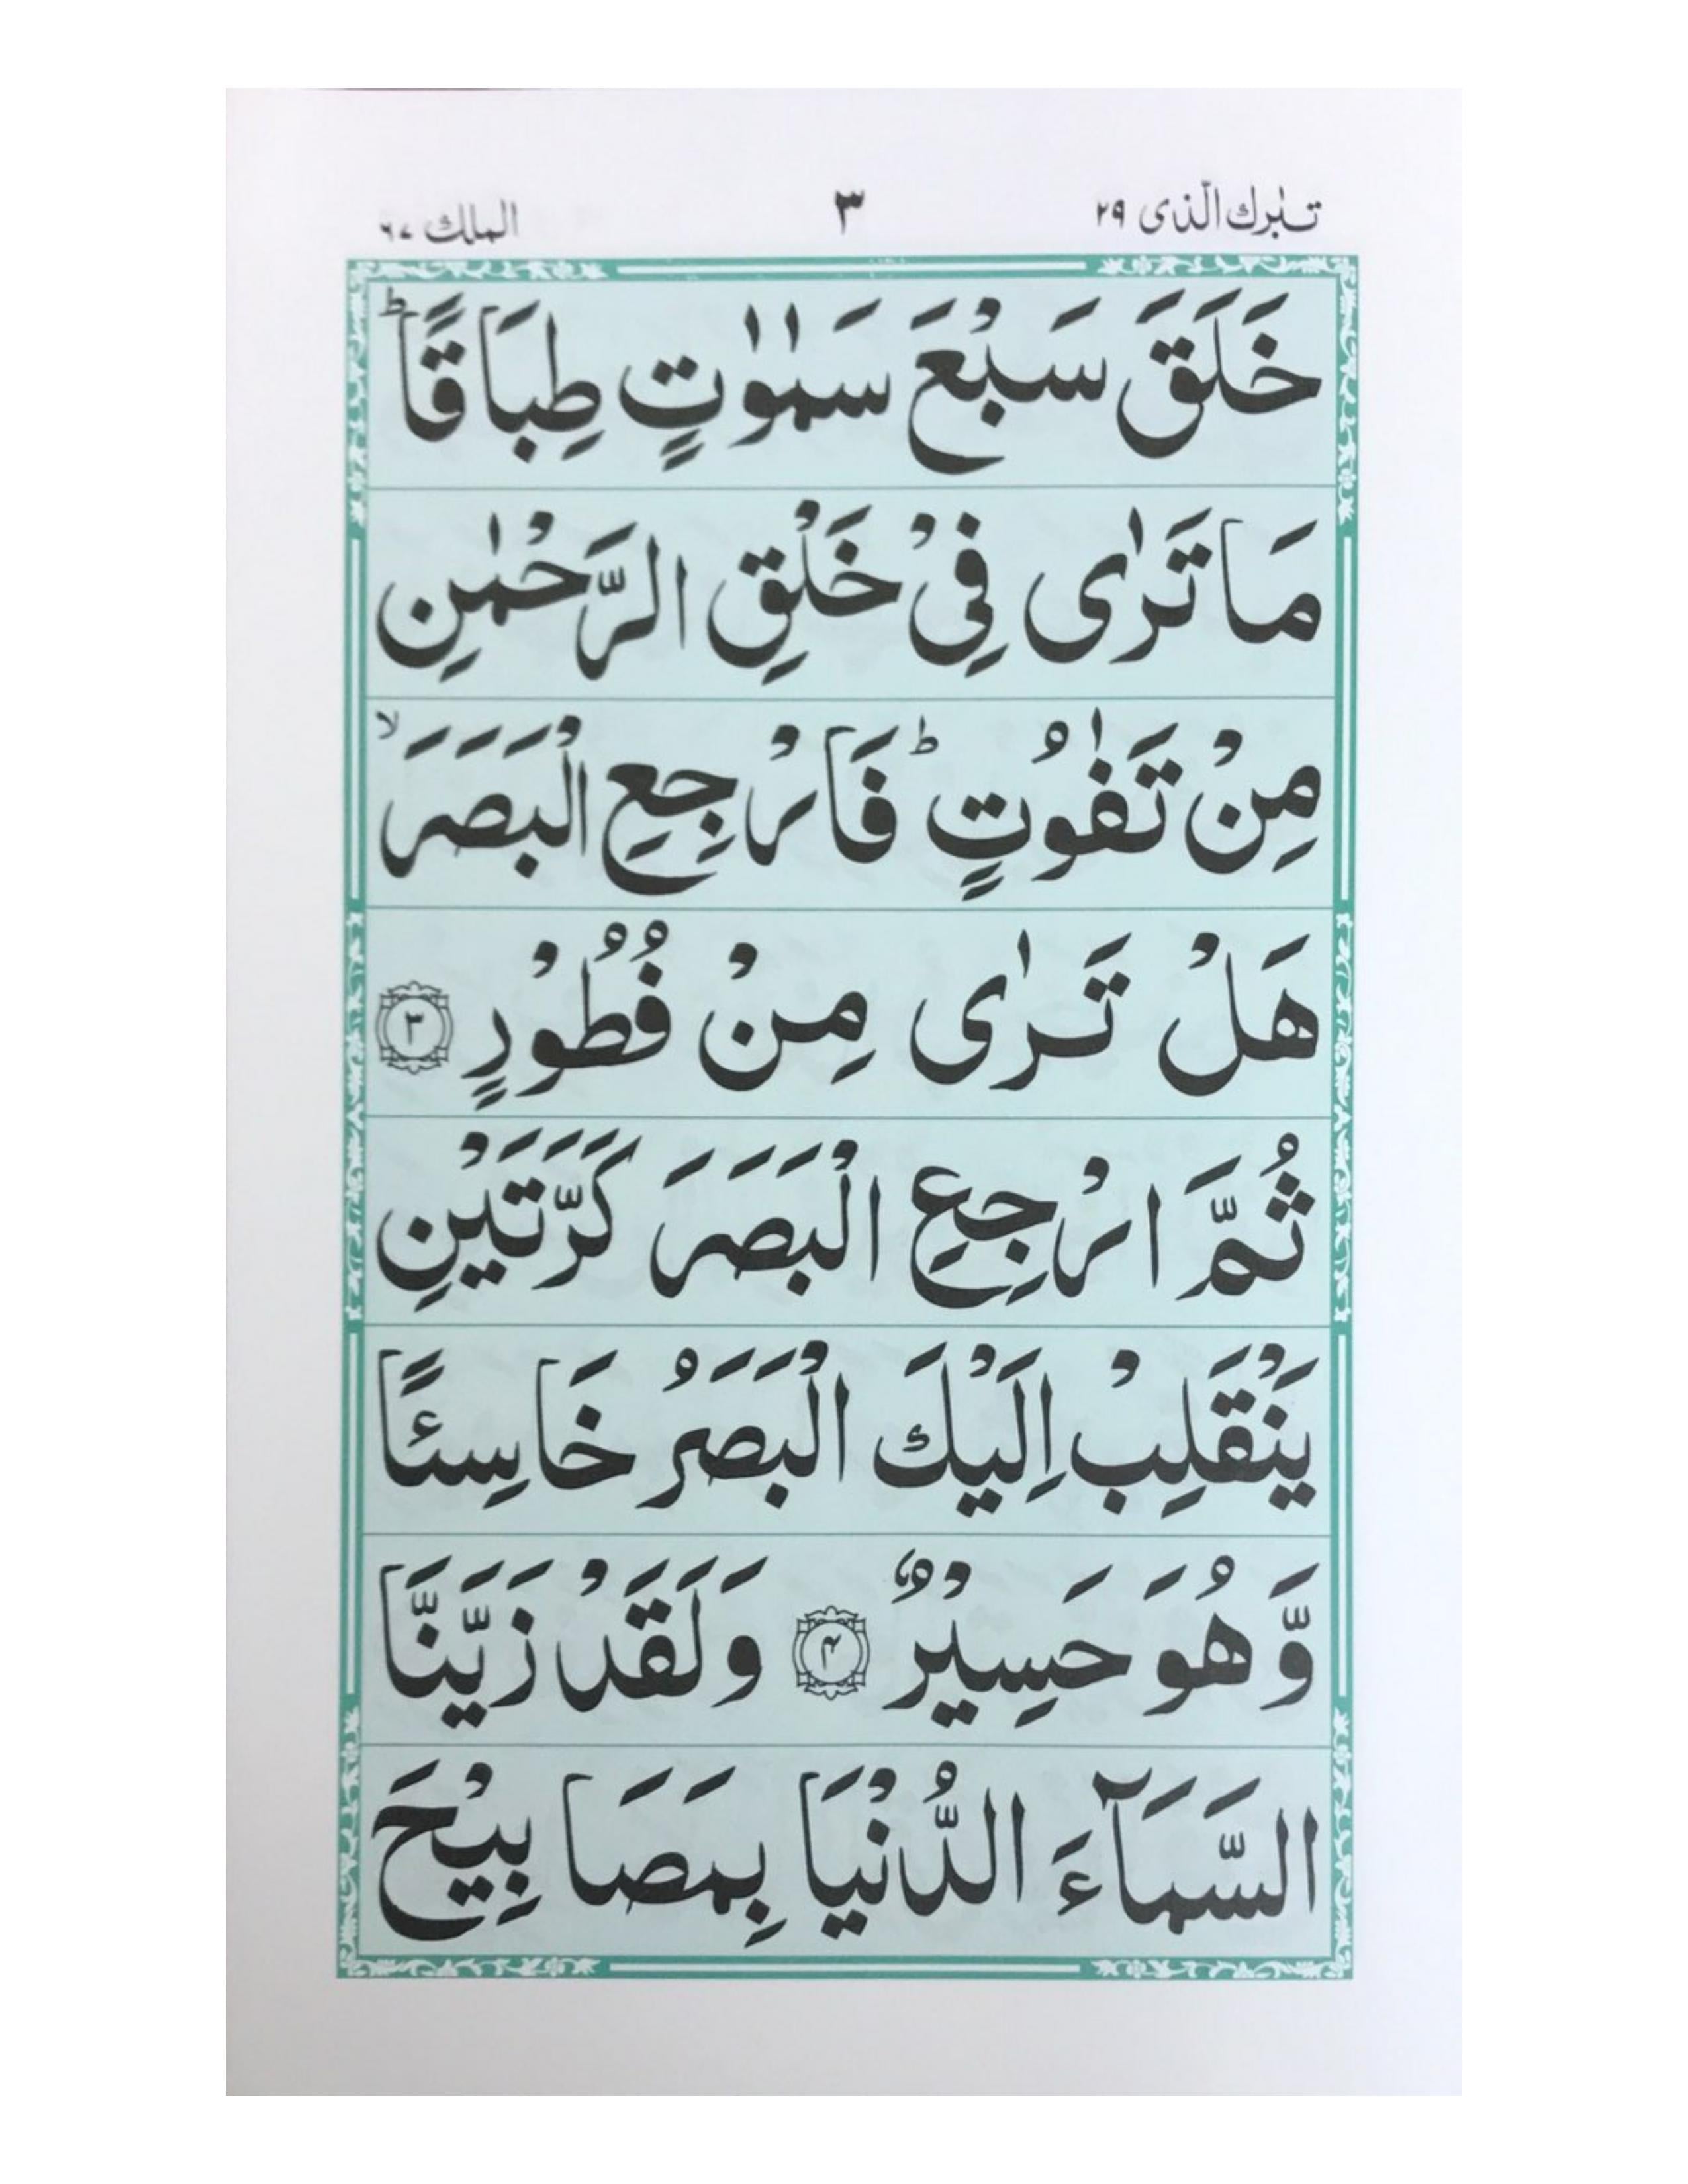 تبٰرك الّذى ٢٩ ٣ الملك ٦٧
خَلَقَ سَبْعَ سَمٰوٰتٍ طِبَاقًا ؕ
مَا تَرٰى فِىْ خَلْقِ الرَّحْمٰنِ
مِنْ تَفٰوُتٍ ؕ فَارْجِعِ الْبَصَرَ ۙ
هَلْ تَرٰى مِنْ فُطُوْرٍ ۝٣
ثُمَّ ارْجِعِ الْبَصَرَ كَرَّتَيْنِ
يَنْقَلِبْ اِلَيْكَ الْبَصَرُ خَاسِئًا
وَّهُوَ حَسِيْرٌ ۝۴ وَلَقَدْ زَيَّنَّا
السَّمَآءَ الدُّنْيَا بِمَصَابِيْحَ